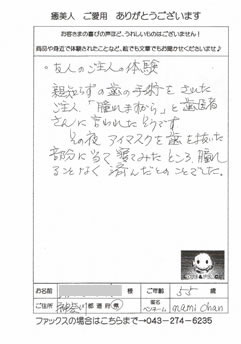 癒美人 ご愛用 ありがとうございます
お客さまの喜びの声ほど、うれしいものはございません!
商品や身近で体験されたことなど、絵でも文章でもお聞かせくださいませ♪
・友人のご主人の体験
親知らずの歯の手術をされた
ご主人「腫れますから」と歯医者
さんに言われたそうです
その夜 アイマスクを歯を抜いた
部分に当て寝てみたところ、腫れ
ることなく済んだとのことでした。
お名前 様 ご年齢 55 歳
ご住所 神奈川 都道府県 ペンネーム mami chan
ファックスの場合はこちらまで→043-274-6235